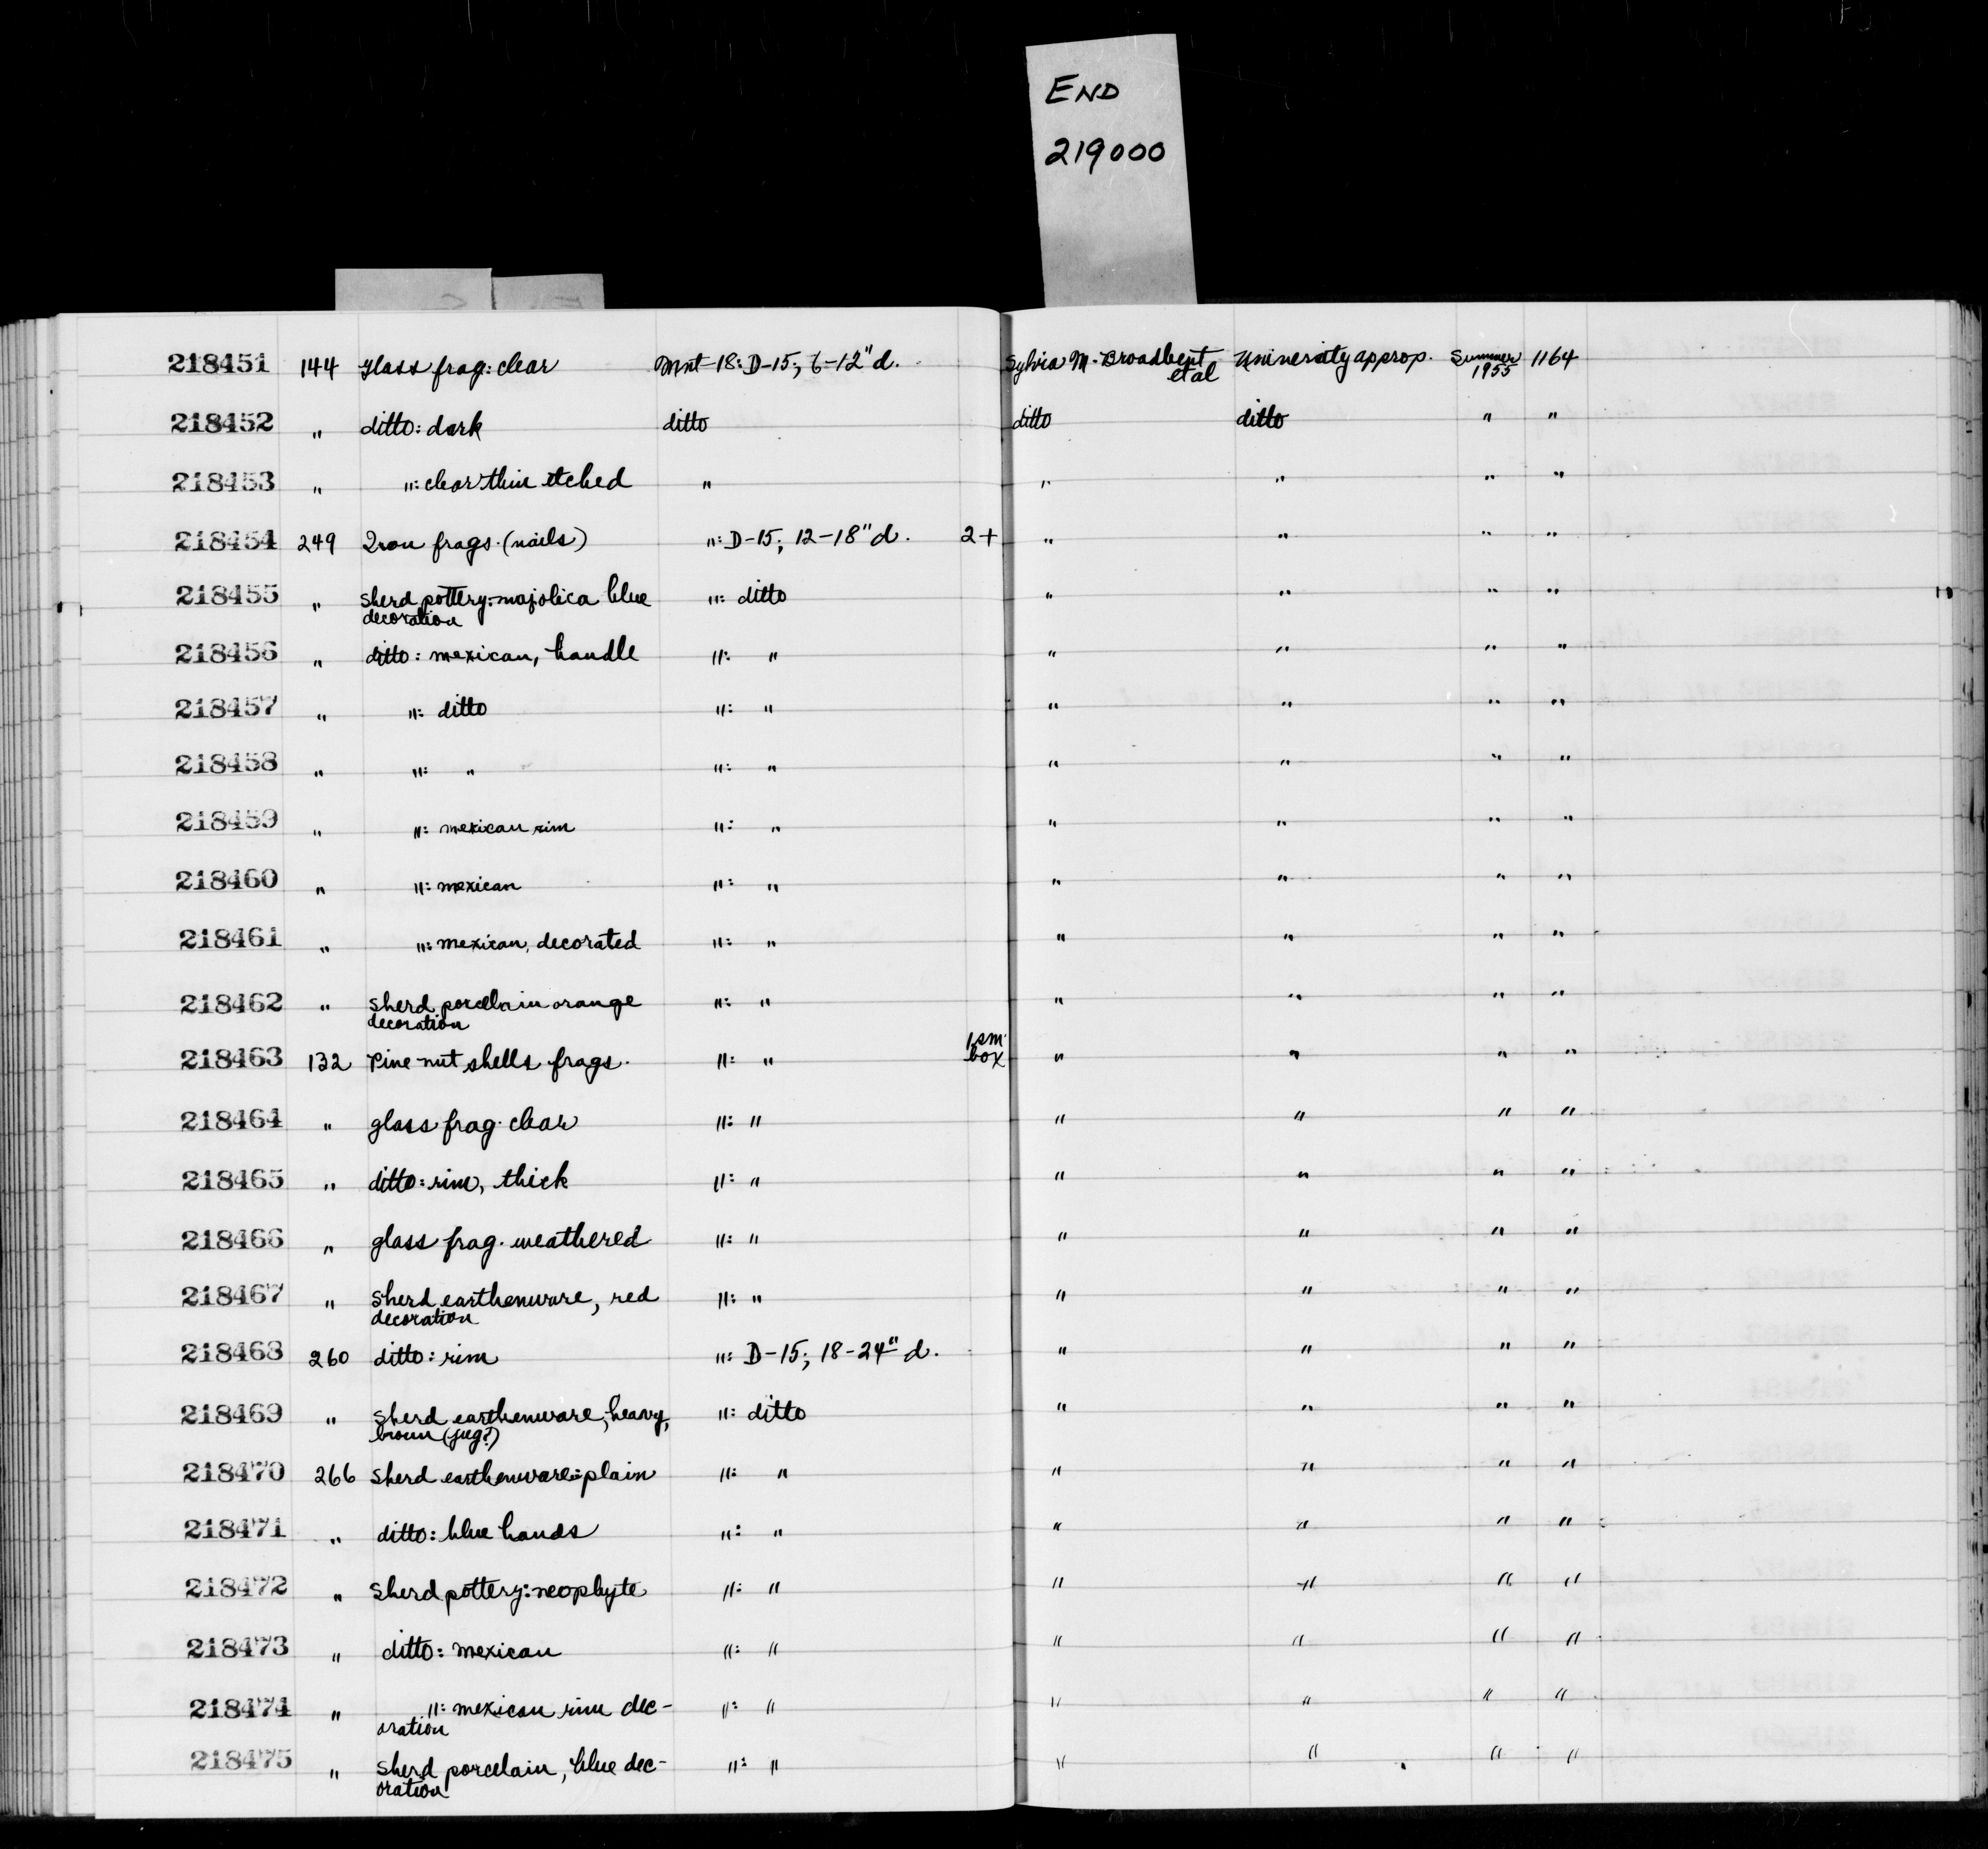 END
219000
218451 144 glass frag: clear Mnt-18: D-15; 6-12" d. Sylvia M. Broadbent et al University approp. Summer 1955 1164
218452 " ditto: dark ditto ditto ditto " "
218453 " ": clear thin etched " " " " "
218454 249 Iron frags. (nails) ": D-15; 12-18" d. 2+ " " " "
218455 " sherd pottery: majolica blue ": ditto " " " "
decoration
218456 " ditto: mexican, handle ": " " " " "
218457 " ": ditto ": " " " " "
218458 " ": " ": " " " " "
218459 " ": mexican rim ": " " " " "
218460 " ": mexican ": " " " " "
218461 " ": mexican, decorated ": " " " " "
218462 " sherd porcelain orange ": " " " " "
decoration
218463 132 Pine nut shells frags. ": " 1 sm. box " " " "
218464 " glass frag. clear ": " " " " "
218465 " ditto: rim, thick ": " " " " "
218466 " glass frag. weathered ": " " " " "
218467 " sherd earthenware, red ": " " " " "
decoration
218468 260 ditto: rim ": D-15; 18-24" d. " " " "
218469 " sherd earthenware, heavy, ": ditto " " " "
brown (jug?)
218470 266 sherd earthenware: plain ": " " " " "
218471 " ditto: blue bands ": " " " " "
218472 " sherd pottery: neophyte ": " " " " "
218473 " ditto: mexican ": " " " " "
218474 " ": mexican rim dec- ": " " " " "
oration
218475 " sherd porcelain, blue dec- ": " " " " "
oration